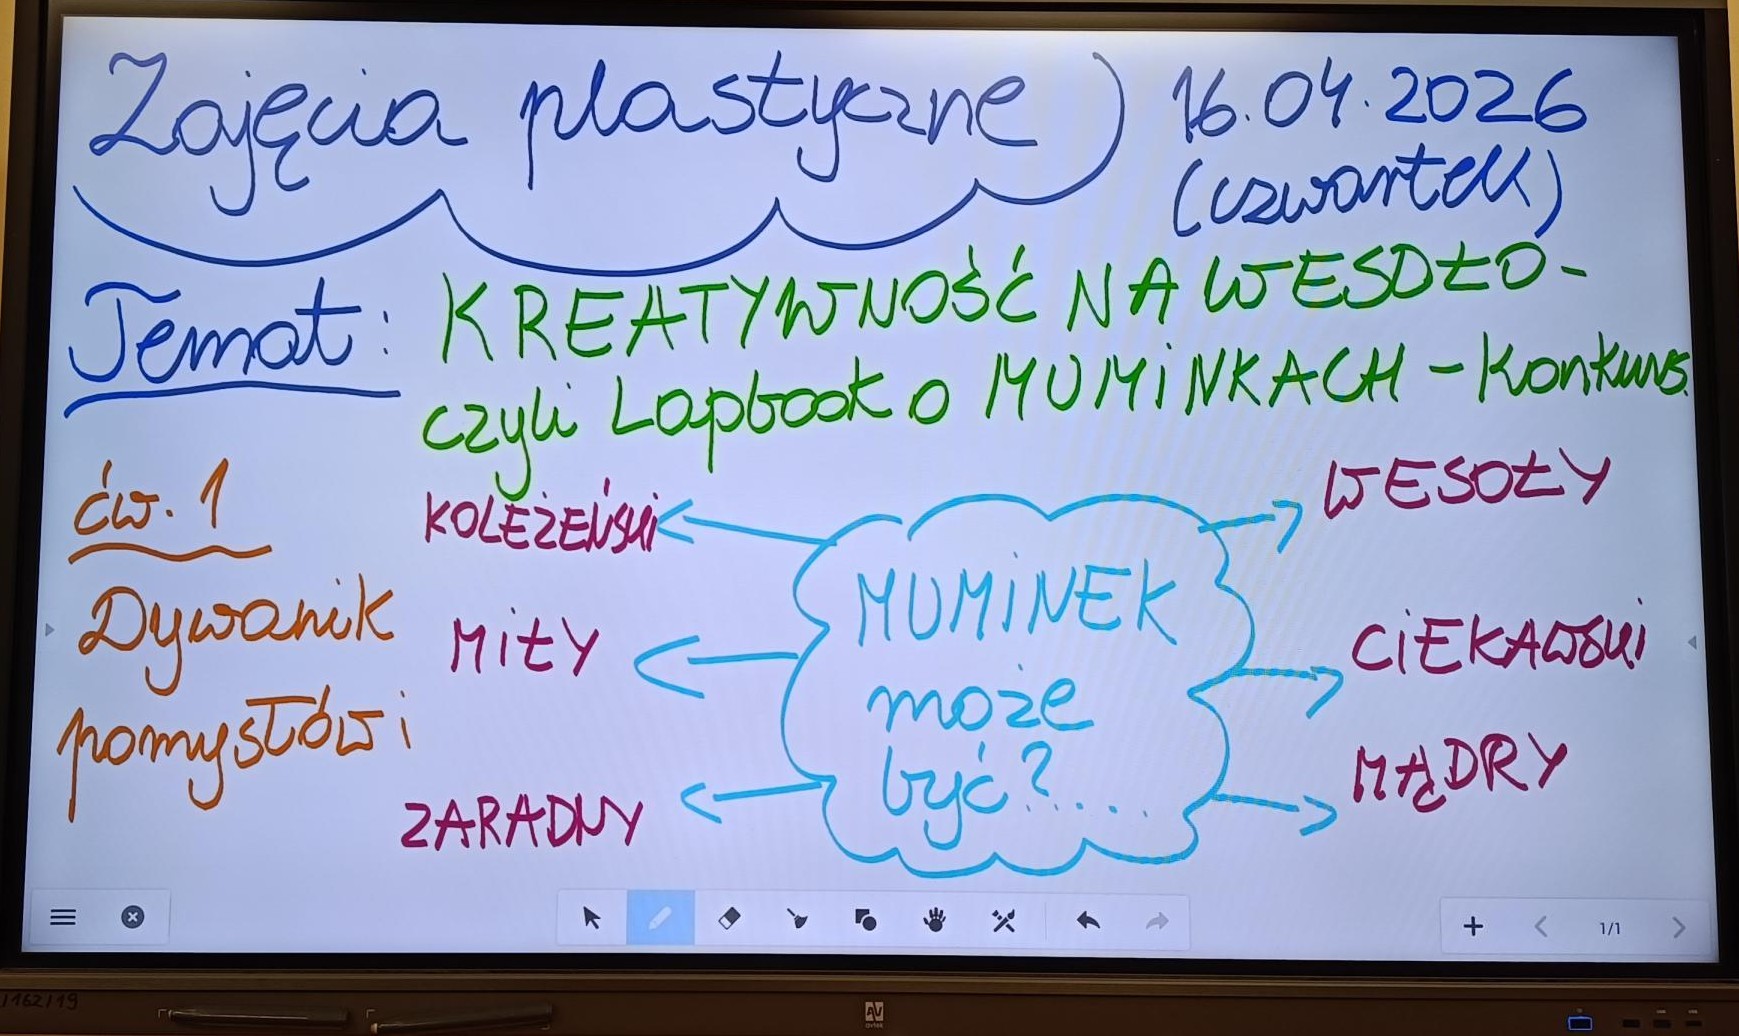 Zajęcia plastyczne
16.04.2026
(czwartek)
Temat: KREATYWNOŚĆ NA WESOŁO -
czyli Lapbook o MUMINKACH - Konkurs.
ćw. 1
Dywanik
pomysłów i
KOLEŻEŃSKI
MIŁY
ZARADNY
MUMINEK
może
być?....
WESOŁY
CIEKAWSKI
MĄDRY
1/1
/162/19
AV
avtek